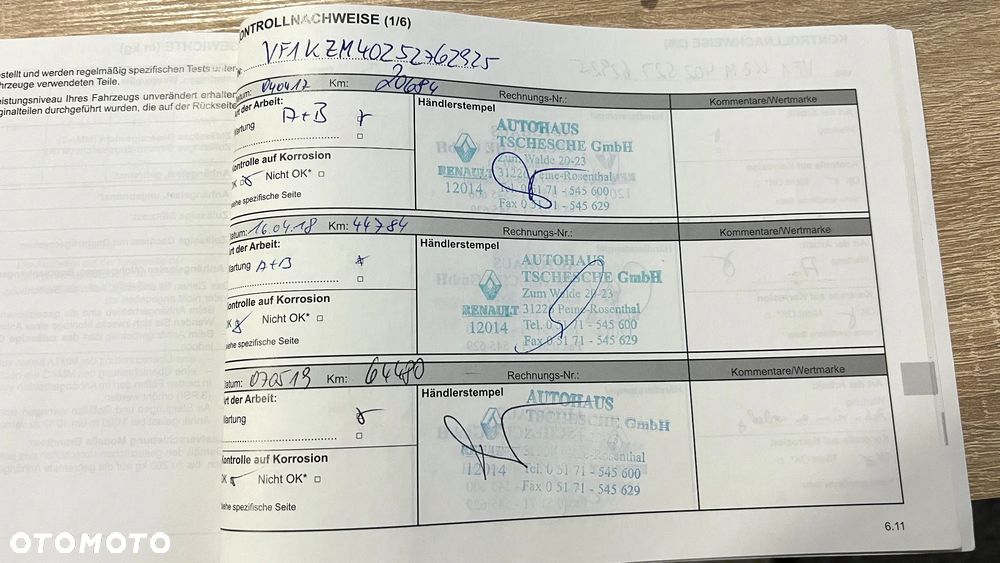 KONTROLLNACHWEISE (1/6)
VF1KZM40252762925
stellt und werden regelmäßig spezifischen Tests unter-
hrzeuge verwendeten Teile.
eistungsniveau Ihres Fahrzeugs unverändert erhalten
ginalteilen durchgeführt wurden, die auf der Rückseite
Datum: 040417 Km: 20684 Rechnungs-Nr.: Kommentare/Wertmarke
Art der Arbeit: A+B
Wartung
Händlerstempel
AUTOHAUS
TSCHESCHE GmbH
Zum Walde 20-23
RENAULT 31226 Peine-Rosenthal
12014 Tel. 0 51 71 - 545 600
Fax 0 51 71 - 545 629
Kontrolle auf Korrosion
OK Nicht OK*
siehe spezifische Seite
Datum: 16.04.18 Km: 44784 Rechnungs-Nr.: Kommentare/Wertmarke
Art der Arbeit:
Wartung A+B
Händlerstempel
AUTOHAUS
TSCHESCHE GmbH
Zum Walde 20-23
RENAULT 31226 Peine-Rosenthal
12014 Tel. 0 51 71 - 545 600
Fax 0 51 71 - 545 629
Kontrolle auf Korrosion
OK Nicht OK*
siehe spezifische Seite
Datum: 070519 Km: 64480 Rechnungs-Nr.: Kommentare/Wertmarke
Art der Arbeit:
Wartung
Händlerstempel
AUTOHAUS
TSCHESCHE GmbH
Rosenthal
12014 Tel. 0 51 71 - 545 600
Fax 0 51 71 - 545 629
Kontrolle auf Korrosion
OK Nicht OK*
siehe spezifische Seite
6.11
OTOMOTO